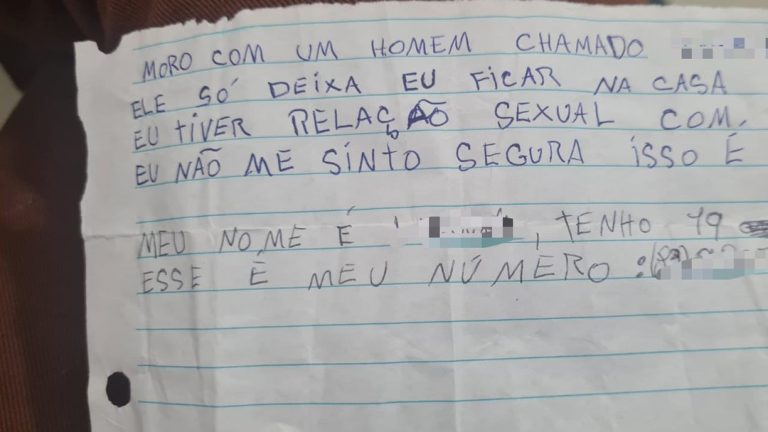 MORO COM UM HOMEM CHAMADO
ELE SÓ DEIXA EU FICAR NA CASA
EU TIVER RELAÇÃO SEXUAL COM.
EU NÃO ME SINTO SEGURA ISSO É
MEU NOME É , TENHO 19
ESSE É MEU NÚMERO :